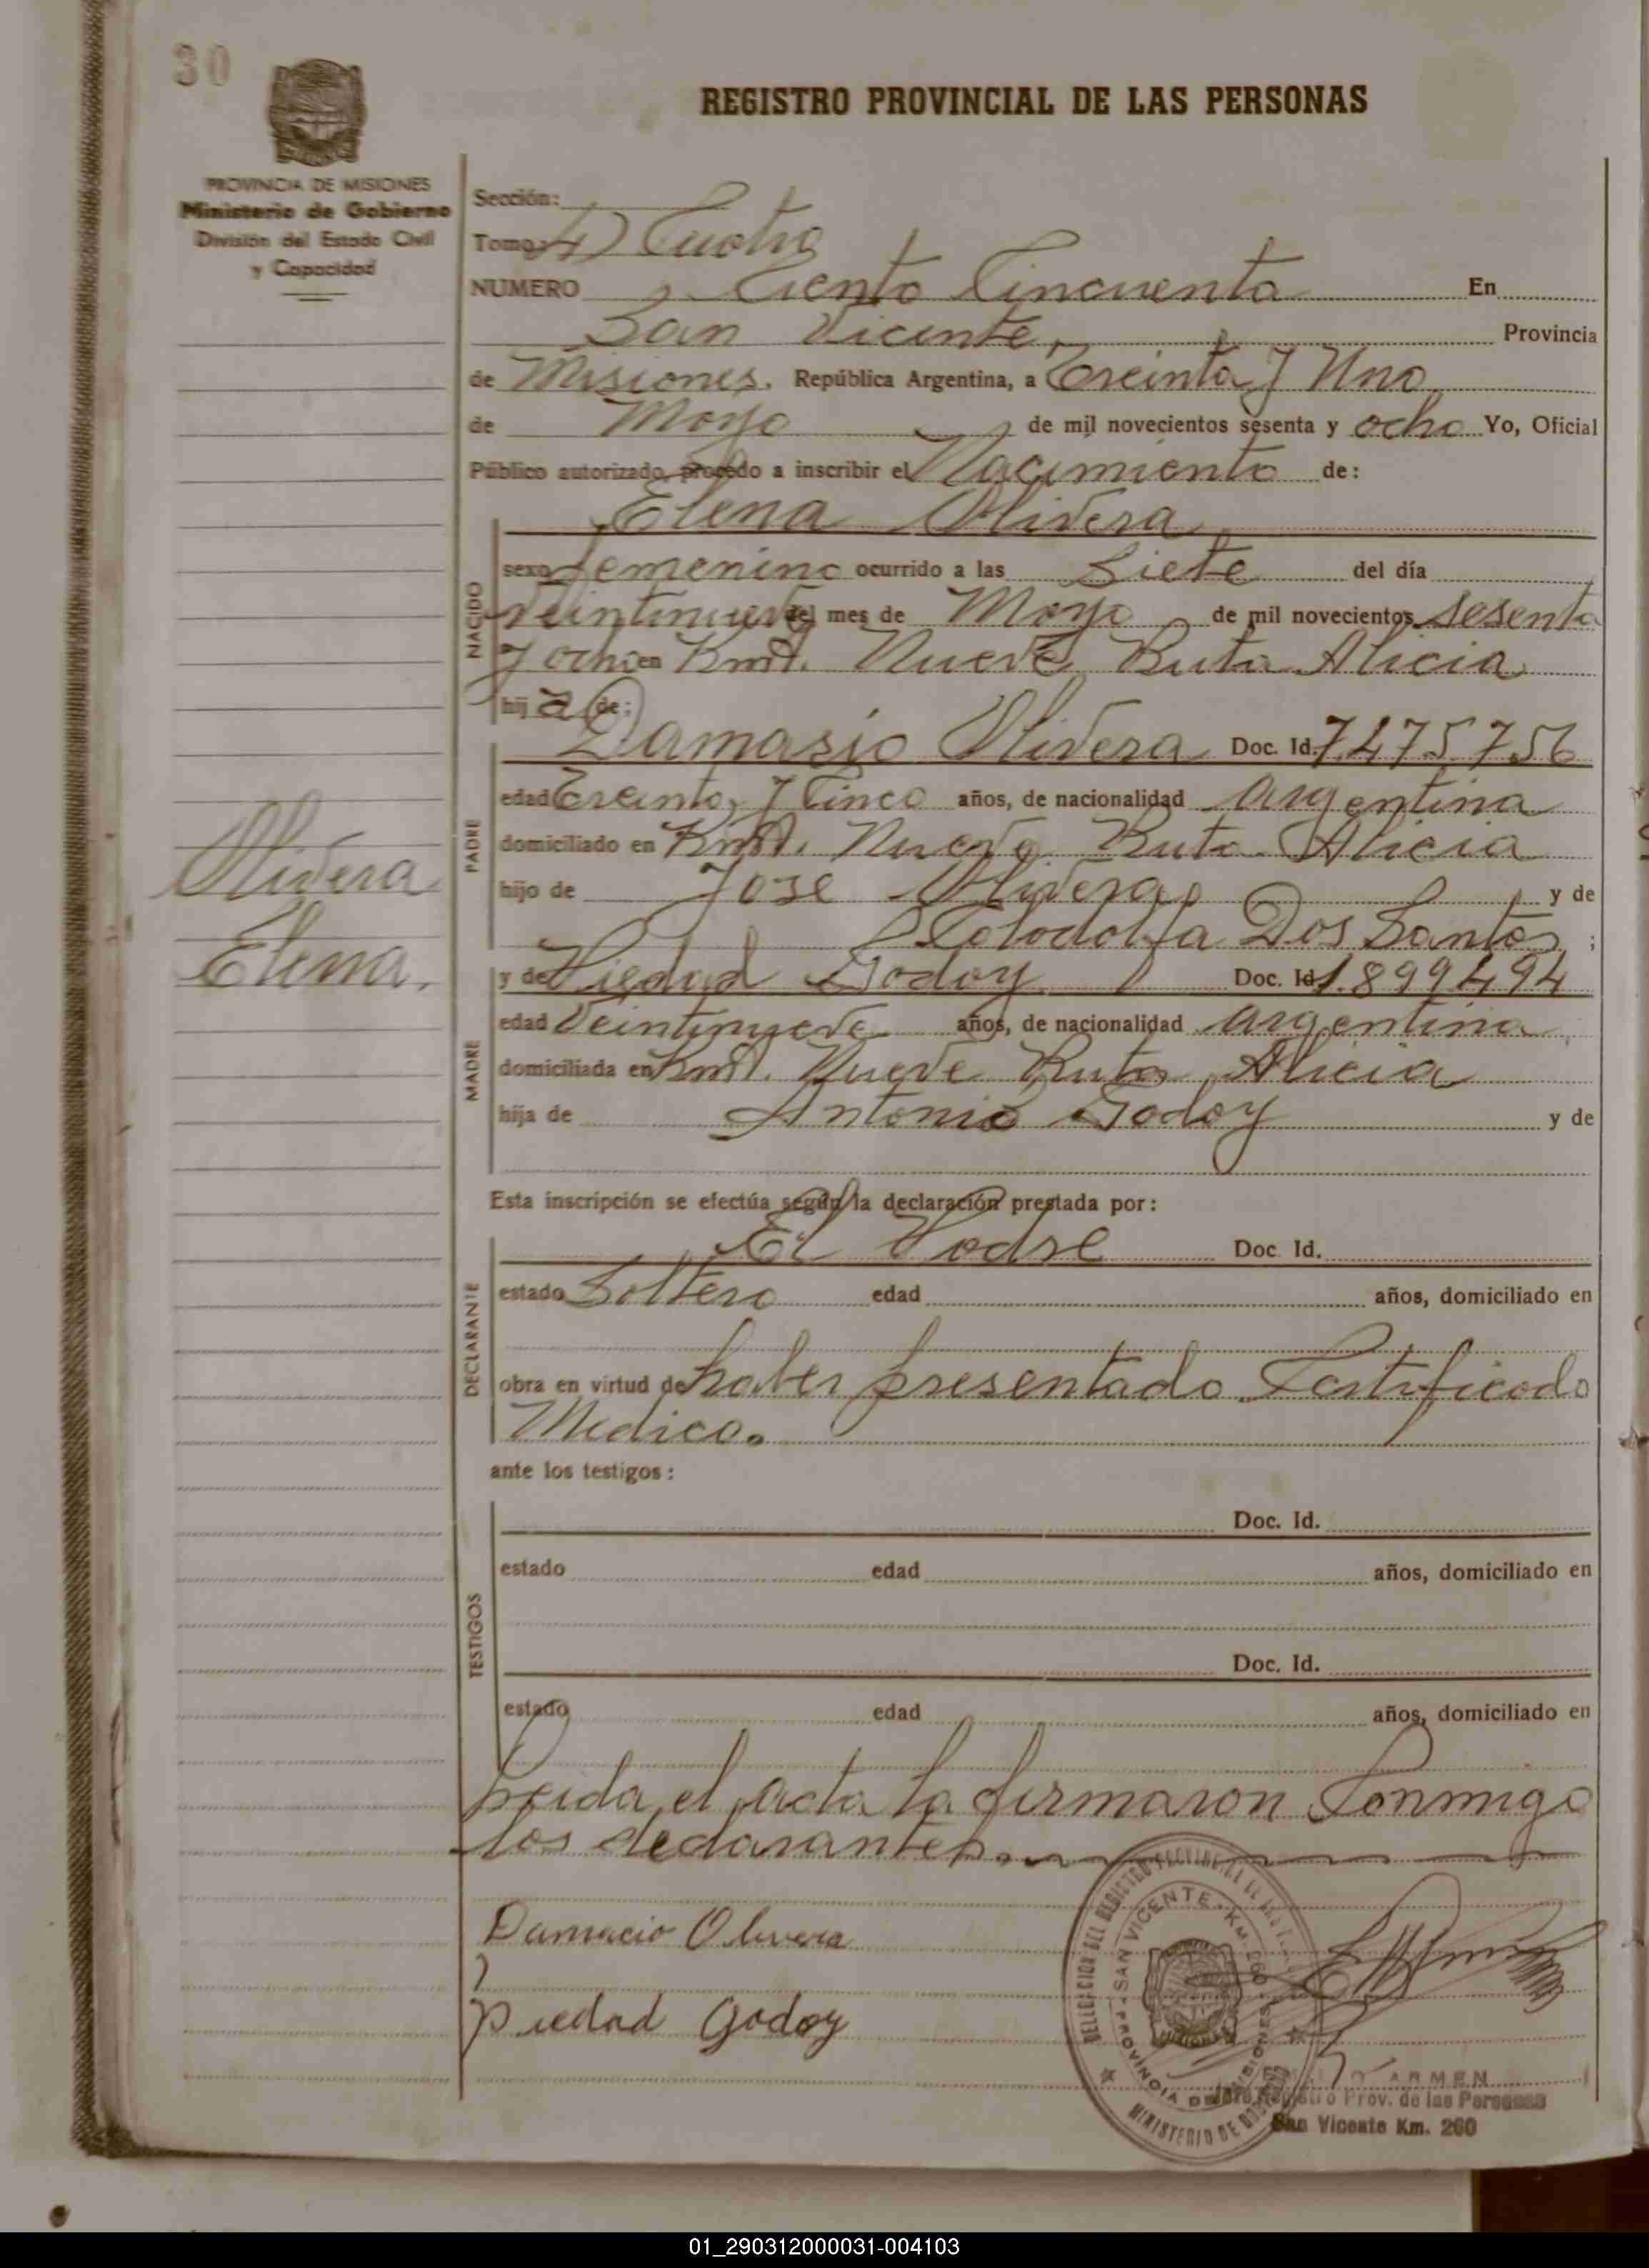 30
REGISTRO PROVINCIAL DE LAS PERSONAS
PROVINCIA DE MISIONES
Ministerio de Gobierno
División del Estado Civil
y Capacidad
Sección:
Tomo: 4) Cuatro
NUMERO Ciento Cincuenta En
San Vicente, Provincia
de Misiones. República Argentina, a Treinta y Uno
de Mayo de mil novecientos sesenta y ocho Yo, Oficial
Público autorizado, procedo a inscribir el Nacimiento de:
Elena Olivera
NACIDO
sexo femenino ocurrido a las Siete del día
Veintinueve del mes de Mayo de mil novecientos sesenta
y ocho en Kmt. Nueve Ruta Alicia
hij a de:
PADRE
Damasio Olivera Doc. Id. 7.475.756
edad Treinta y Cinco años, de nacionalidad argentina
domiciliado en Kmt. Nueve Ruta Alicia
hijo de Jose Olivera y de
Dos Santos;
Olivera
Elena.
MADRE
y de Piedad Godoy Doc. Id. 1.899.494
edad Veintinueve años, de nacionalidad argentina
domiciliada en Kmt. Nueve Ruta Alicia
hija de Antonio Godoy y de
Esta inscripción se efectúa según la declaración prestada por:
DECLARANTE
El Padre Doc. Id.
estado Soltero edad años, domiciliado en
obra en virtud de haber presentado Certificado
Medico.
ante los testigos:
TESTIGOS
Doc. Id.
estado edad años, domiciliado en
Doc. Id.
estado edad años, domiciliado en
Leida el acta la firmaron Conmigo
los declarantes.
Damacio Olivera
Piedad Godoy
SAN VICENTE - Km. 260
PROVINCIA DE MISIONES
MINISTERIO DE
Registro Prov. de las Personas
San Vicente Km. 260
01_290312000031-004103